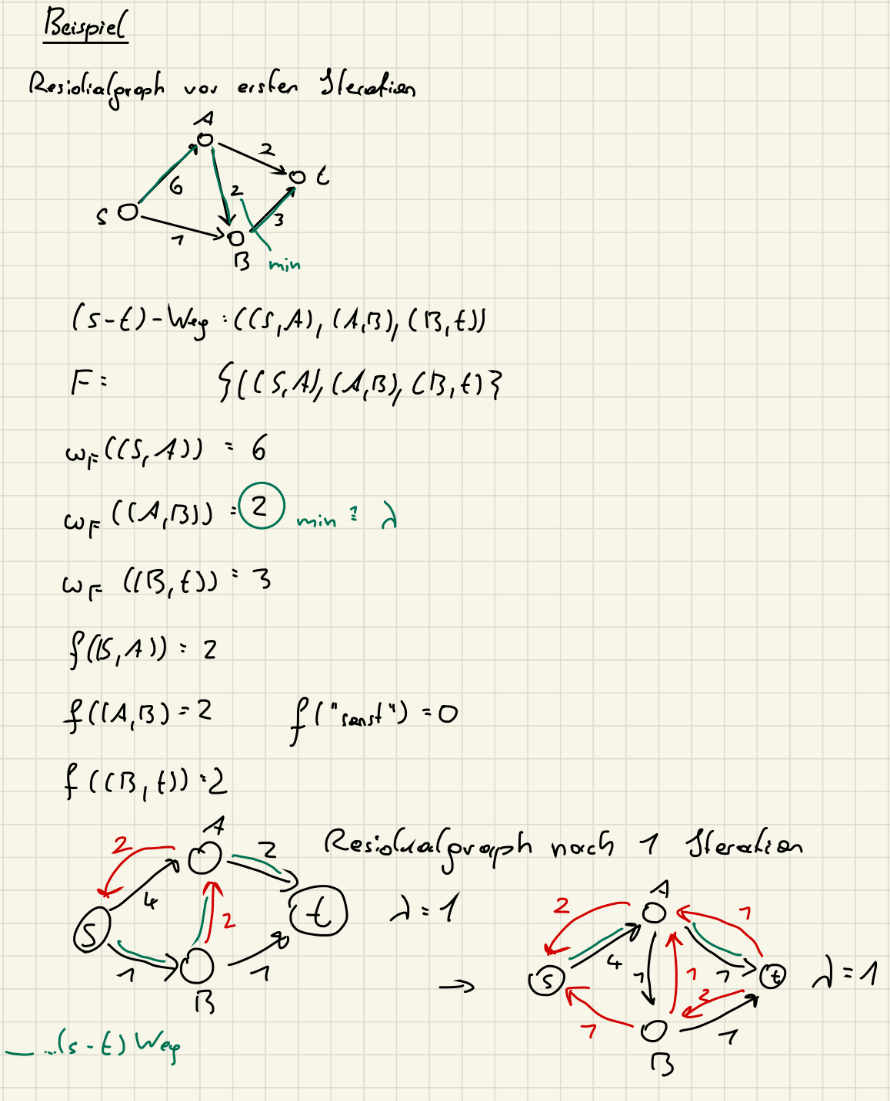 Beispiel
Residialgraph vor ersten Iteration
A
2
t
6
2
3
S
1
B
min
(s-t)-Weg : ((S,A), (A,B), (B,t))
F = {((S,A), (A,B), (B,t)}
ωF((S,A)) = 6
ωF ((A,B)) = 2 min = λ
ωF ((B,t)) = 3
f((S,A)) = 2
f((A,B) = 2 f("sonst") = 0
f((B,t)) = 2
A
Residualgraph nach 1 Iteration
2
2
4
t
λ = 1
S
2
1
1
B
→
A
2
1
4
1
1
1
S
t
λ = 1
2
1
1
B
... (s-t) Weg